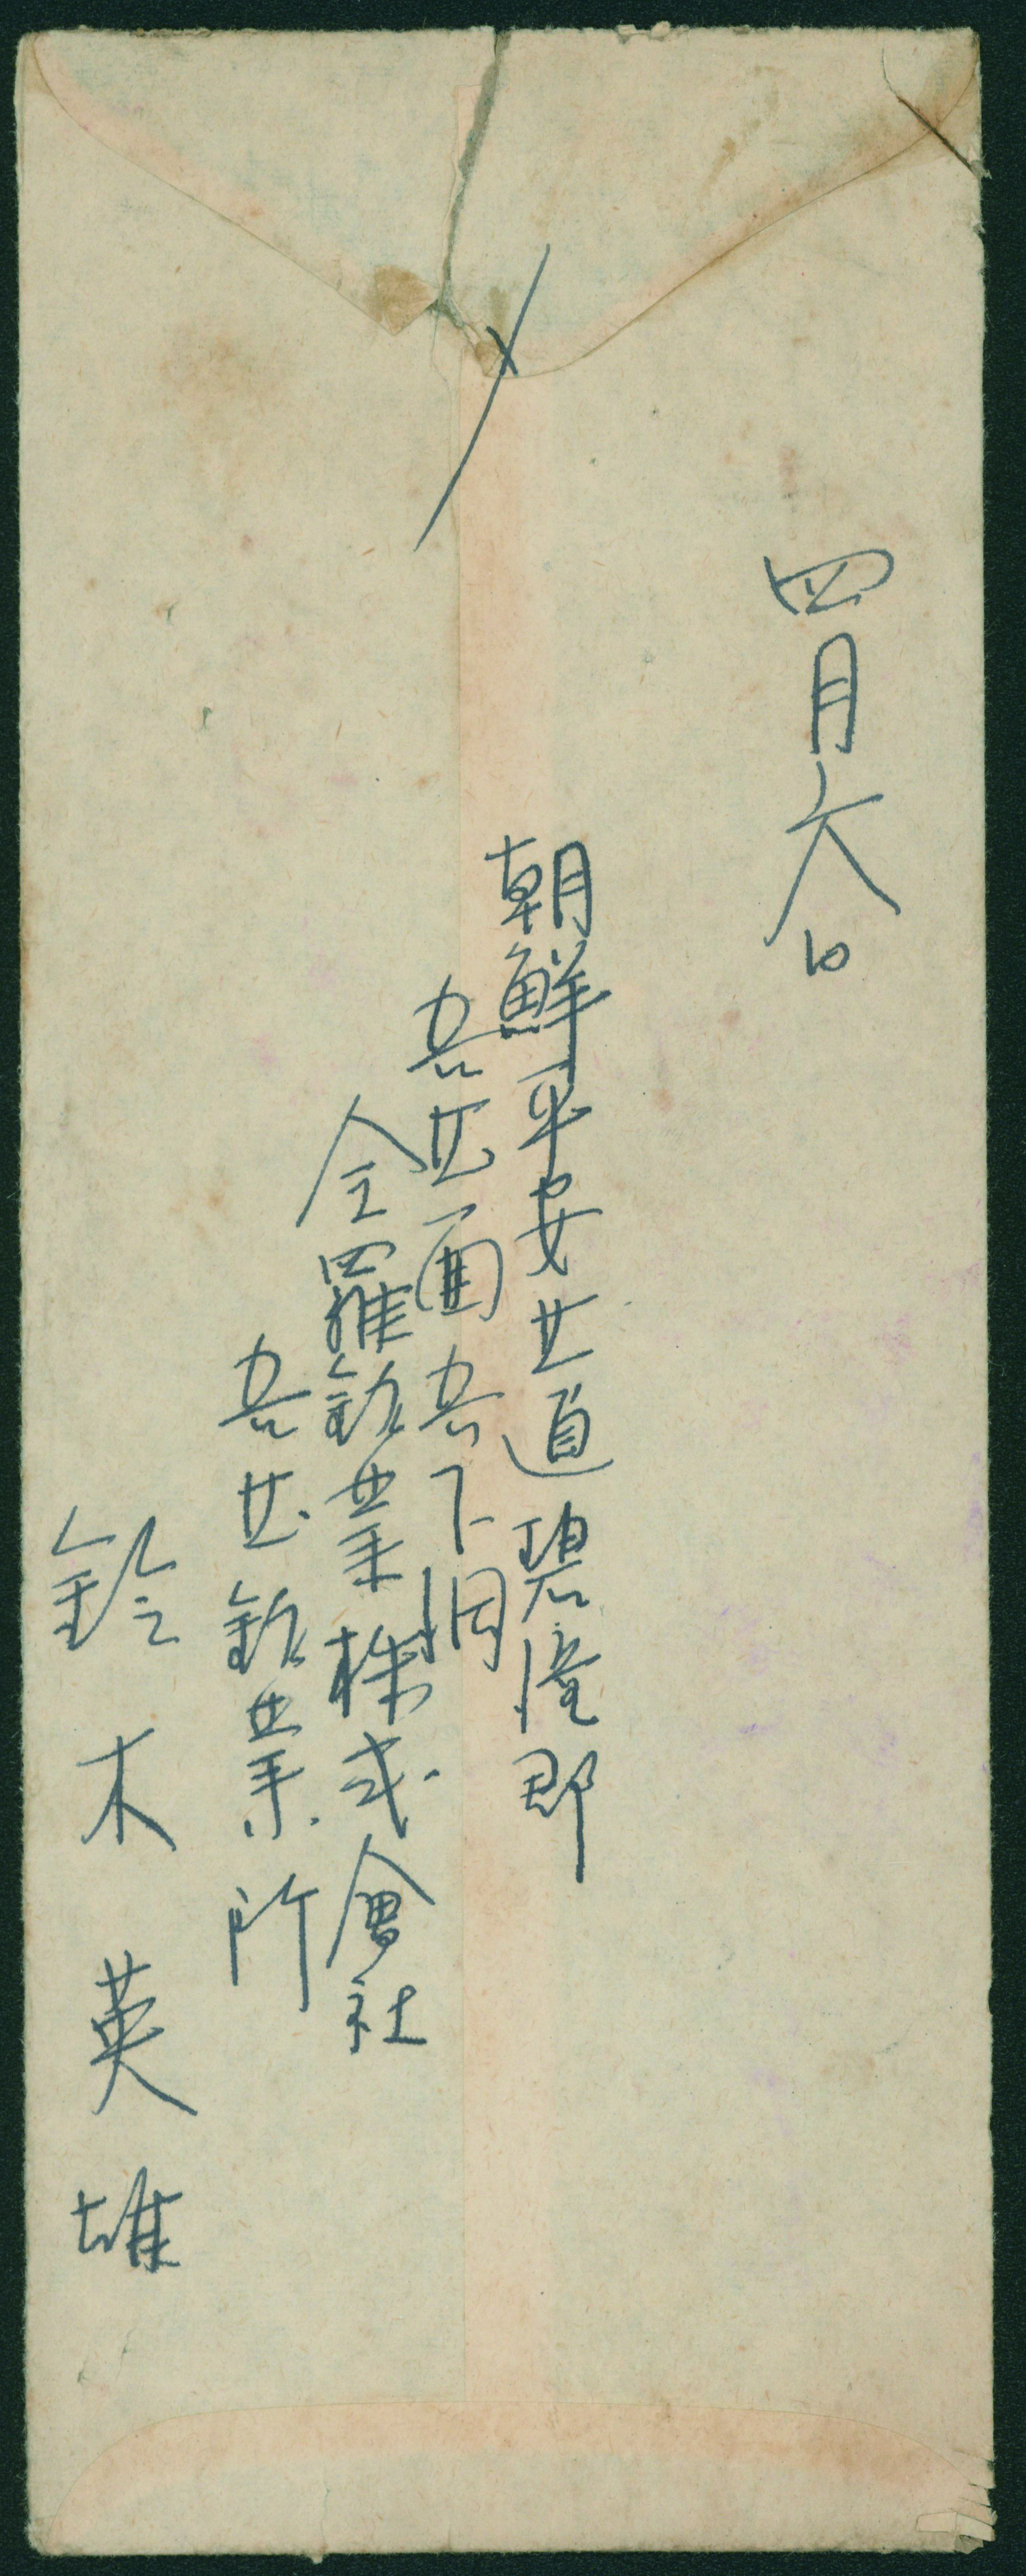 〆
四月六日
朝鮮平安北道碧潼郡
吾北面吾下洞
全羅鉱業株式會社
吾北鉱業所
鈴木英雄